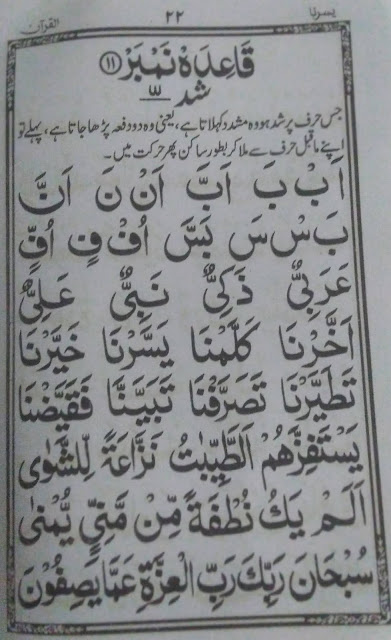 یسرنا ۲۲ القرآن
قَاعِدَہ نَمْبَرْ ۱۱
شد ـّ
جس حرف پر شد ہو وہ مشدد کہلاتا ہے، یعنی وہ دو دفعہ پڑھا جاتا ہے، پہلے تو
اپنے ماقبل حرف سے ملا کر بطور ساکن پھر حرکت میں۔
اَبْ بَ اَبَّ اَنْ نَ اَنَّ
بَسْ سَ بَسَّ اُفْ فٍ اُفٍّ
عَرَبِیٌّ ذَکِیٌّ نَبِیٌّ عَلِیٌّ
اَخَّرْنَا کَلَّمْنَا یَسَّرْنَا خَیَّرْنَا
تَطَیَّرْنَا تَصَرَّفْنَا تَبَیَّنَّا فَقَیَّضْنَا
یَسْتَفِزَّهُمْ اَلطَّیِّبٰتُ نَزَّاعَةً لِّلشَّوٰی
اَلَمْ یَكُ نُطْفَةً مِّنْ مَّنِیٍّ یُّمْنٰی
سُبْحَانَ رَبِّكَ رَبِّ الْعِزَّةِ عَمَّا یَصِفُوْنَ